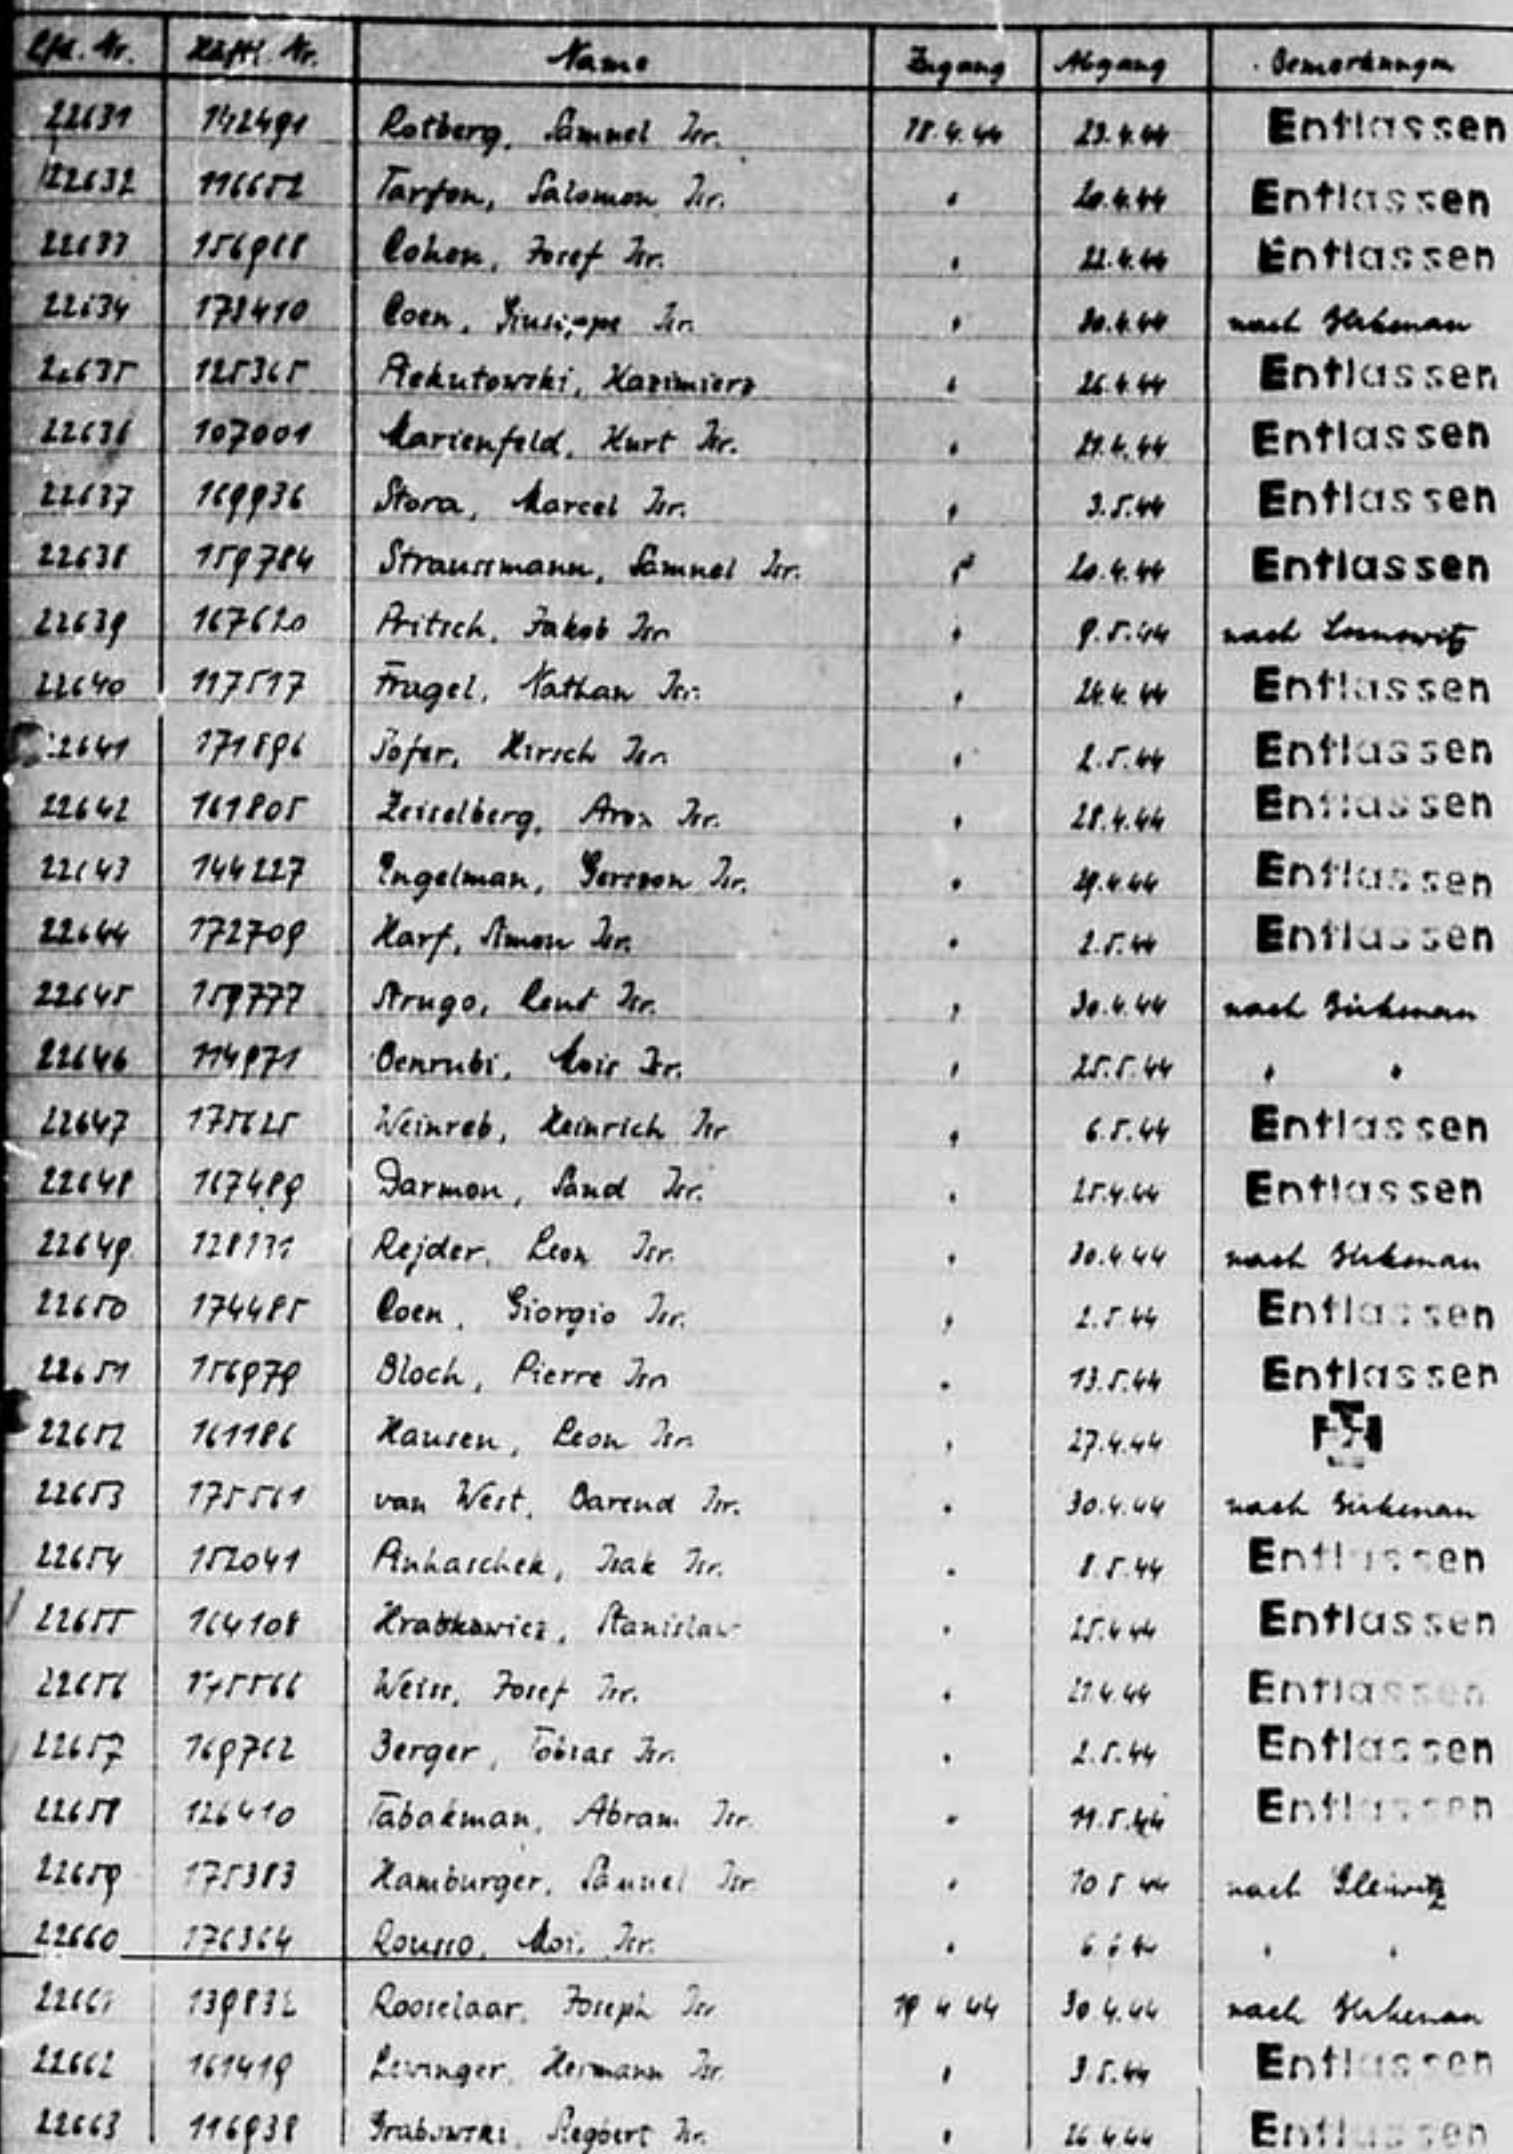 Lfd. Nr. Häftl. Nr. Name Zugang Abgang Bemerkungen
22631 142491 Rotberg, Samuel Isr. 18.4.44 23.4.44 Entlassen
22632 116652 Tarfon, Salomon Isr. " 20.4.44 Entlassen
22633 156968 Cohen, Josef Isr. " 22.4.44 Entlassen
22634 173410 Coen, Giuseppe Isr. " 30.4.44 nach Birkenau
22635 125365 Piekutowski, Kazimierz " 26.4.44 Entlassen
22636 107001 Marienfeld, Kurt Isr. " 21.4.44 Entlassen
22637 169936 Stora, Marcel Isr. " 3.5.44 Entlassen
22638 159784 Straussmann, Samuel Isr. " 20.4.44 Entlassen
22639 167620 Pritsch, Jakob Isr. " 9.5.44 nach
22640 117517 Fragel, Nathan Isr. " 24.4.44 Entlassen
22641 171896 Sofer, Hirsch Isr. " 2.5.44 Entlassen
22642 161805 Zeisselberg, Aron Isr. " 28.4.44 Entlassen
22643 144227 Engelman, Gerszon Isr. " 29.4.44 Entlassen
22644 172709 Harf, Simon Isr. " 2.5.44 Entlassen
22645 159777 Strugo, Isr. " 30.4.44 nach Birkenau
22646 114971 Benrubi, Mois Isr. " 25.5.44 " "
22647 175625 Weinreb, Heinrich Isr. " 6.5.44 Entlassen
22648 167489 Darmon, Isr. " 25.4.44 Entlassen
22649 128131 Rejder, Leon Isr. " 30.4.44 nach Birkenau
22650 174485 Coen, Giorgio Isr. " 2.5.44 Entlassen
22651 156979 Bloch, Pierre Isr. " 13.5.44 Entlassen
22652 161186 Hausen, Leon Isr. " 27.4.44
22653 175561 van West, Barend Isr. " 30.4.44 nach Birkenau
22654 152041 Pinhaschek, Isak Isr. " 8.5.44 Entlassen
22655 164108 Stanislaw " 25.4.44 Entlassen
22656 Weiss, Josef Isr. " 21.4.44 Entlassen
22657 169762 Berger, Tobias Isr. " 2.5.44 Entlassen
22658 126410 Tabakman, Abram Isr. " 11.5.44 Entlassen
22659 175383 Hamburger, Samuel Isr. " 10.5.44 nach Gleiwitz
22660 176364 Rousso, Isr. " " "
22661 139832 Rooselaar, Joseph Isr. 19.4.44 30.4.44 nach Birkenau
22662 161419 Levinger, Hermann Isr. " 3.5.44 Entlassen
22663 116938 Grabowski, Siegbert Isr. " 26.4.44 Entlassen